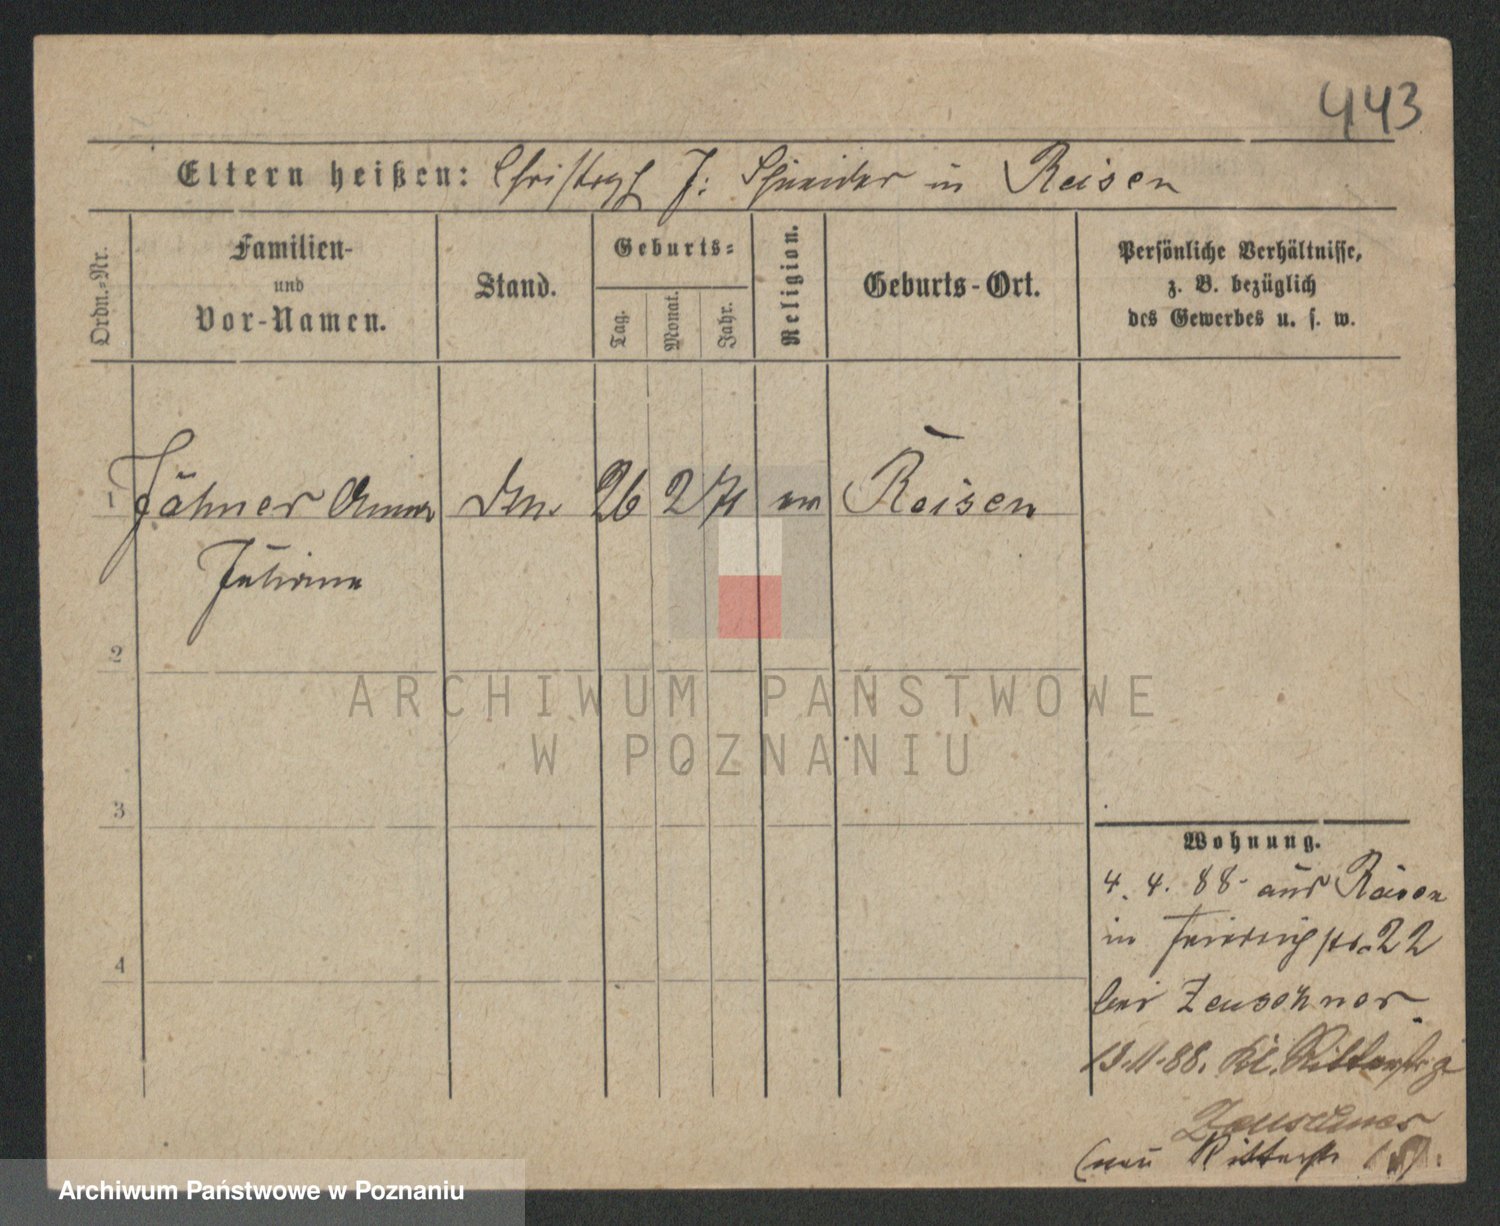 443
Eltern heißen: Christoph J: Schneider in Reisen
Ordn.-Nr.
Familien-
und
Vor-Namen.
Stand.
Geburts-
Tag.
Monat.
Jahr.
Religion.
Geburts-Ort.
Persönliche Verhältnisse,
z. B. bezüglich
des Gewerbes u. s. w.
1 Jähner Anna 26 2 71 ev Reisen
Juliana
2
3
4
Wohnung.
4. 4. 88 aus Reisen
in 22
bei Zeuschner
13.11.88. Kl. Ritterstr
Zeuschner
(neu Ritterstr
ARCHIWUM PAŃSTWOWE
W POZNANIU
Archiwum Państwowe w Poznaniu